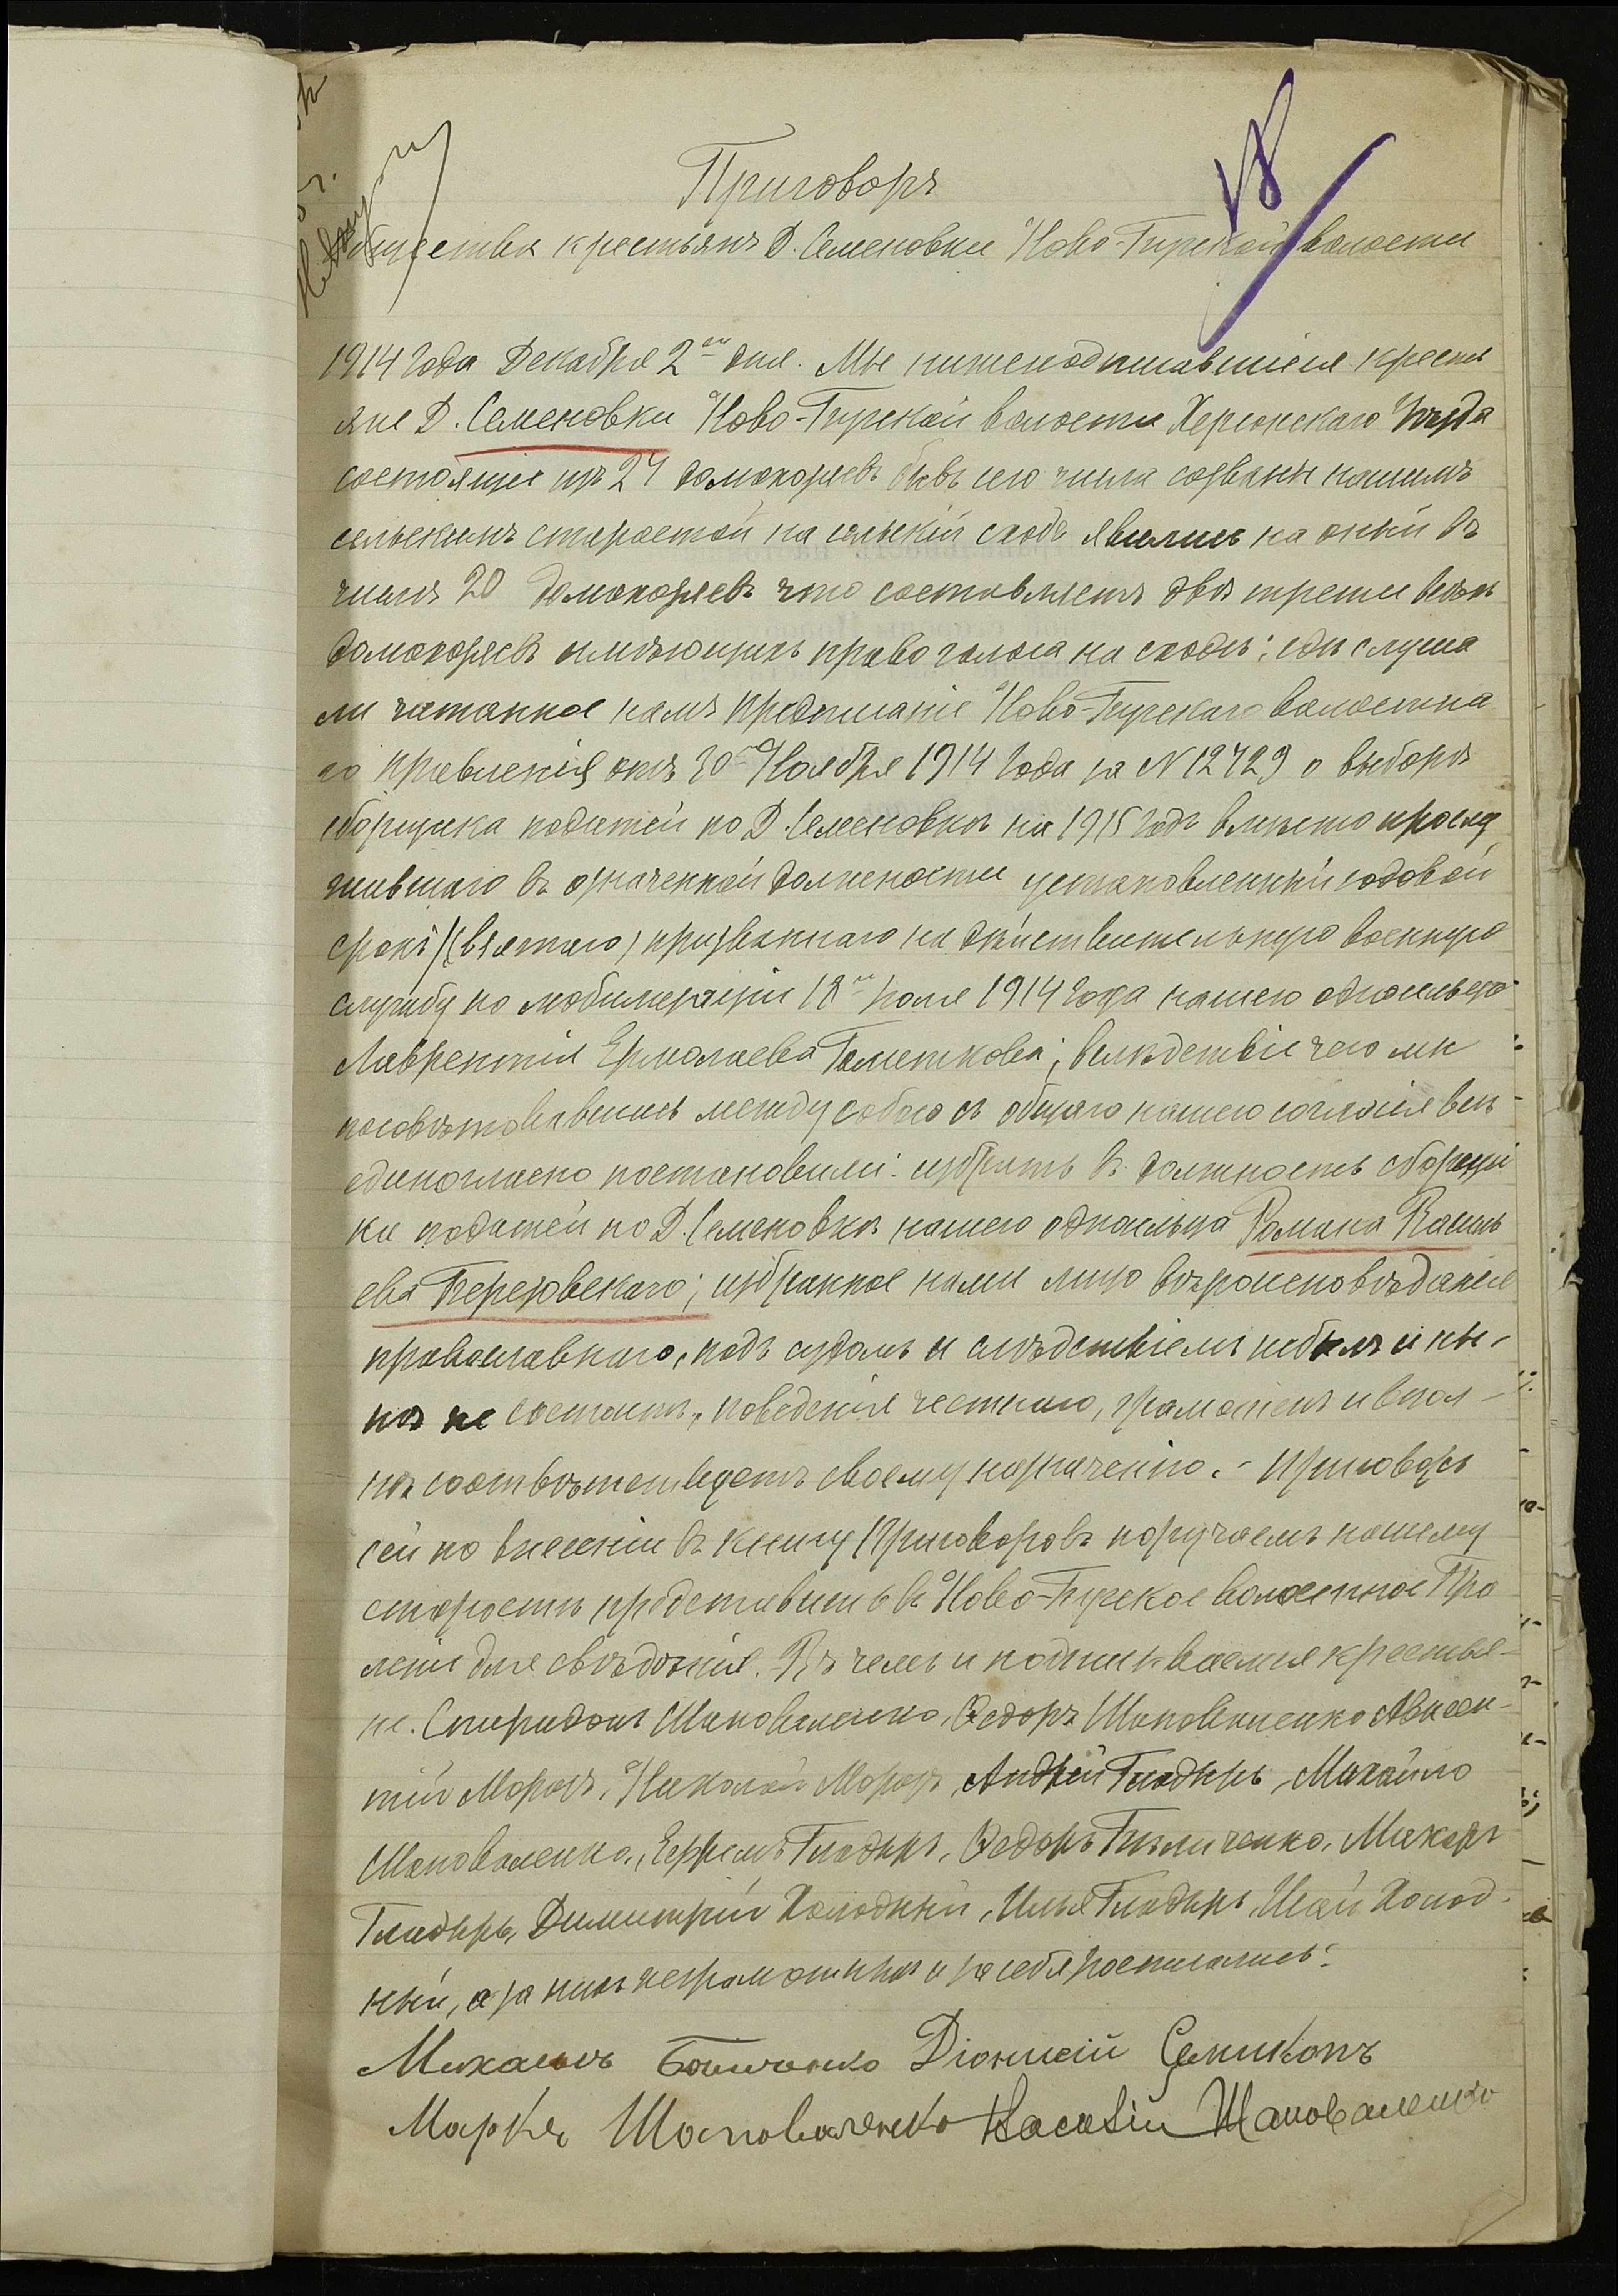 18
Приговоръ
общества крестьянъ Д. Семеновки Ново-Бугской волости
1914 года Декабря 2го дня. Мы нижеподписавшіеся кресть
яне Д. Семеновки Ново-Бугской волости Херсонскаго Уѣзда
состоящіе изъ 24 домохозяевъ бывъ сего числа созваны нашимъ
сельскимъ старостой на сельскій сходъ явились на оный въ
числѣ 20 домохозяевъ что составляетъ двѣ трети всѣхъ
домохозяевъ имѣющихъ право голоса на сходѣ; гдѣ слуша
ли читанное намъ предписаніе Ново-Бугскаго волостна
го правленія отъ 30го Ноября 1914 года за № 12729 о выборѣ
сборщика податей по Д. Семеновкѣ на 1915 годъ вмѣсто прослу
жившаго въ означенной должности установленный годовой
срокъ / (взятаго) призваннаго на дѣйствительную военную
службу по мобилизаціи 18го Іюля 1914 года нашего односельца
Лаврентія Ермолаева; вслѣдствіе чего мы
посовѣтовавшись между собою съ общаго нашего согласія всѣ
единогласно постановили: избрать въ должность сборщи
ка податей по Д. Семеновкѣ нашего односельца Романа Василь
ева Березовскаго; избранное нами лицо вѣроисповѣданія
православнаго, подъ судомъ и слѣдствіемъ небылъ и ны-
нѣ не состоитъ, поведенія честнаго, грамотенъ и впол-
нѣ соотвѣтствуетъ своему назначенію. - Приговоръ
сей по внесеніи въ книгу приговоровъ поручаемъ нашему
старостѣ представить въ Ново-Бугское волостное Пра
леніе для свѣдѣнія. Въ чемъ и подписываемся крестья-
не. Спиридонъ Шаповаленко, Ѳедоръ Шаповаленко Авксен-
тій Морозъ, Николай Морозъ, Андрей Гладырь, Михайло
Шаповаленко, Ефремъ Гладырь, Ѳедоръ Бѣличенко, Макаръ
Гладырь, Димитрій Холодный, Илья Гладырь, Исай Холод-
ный, а за нихъ неграмотныхъ и за себя росписались:
Михаилъ Діонисій Семикопъ
Марко Шаповаленко Касьян Шаповаленко